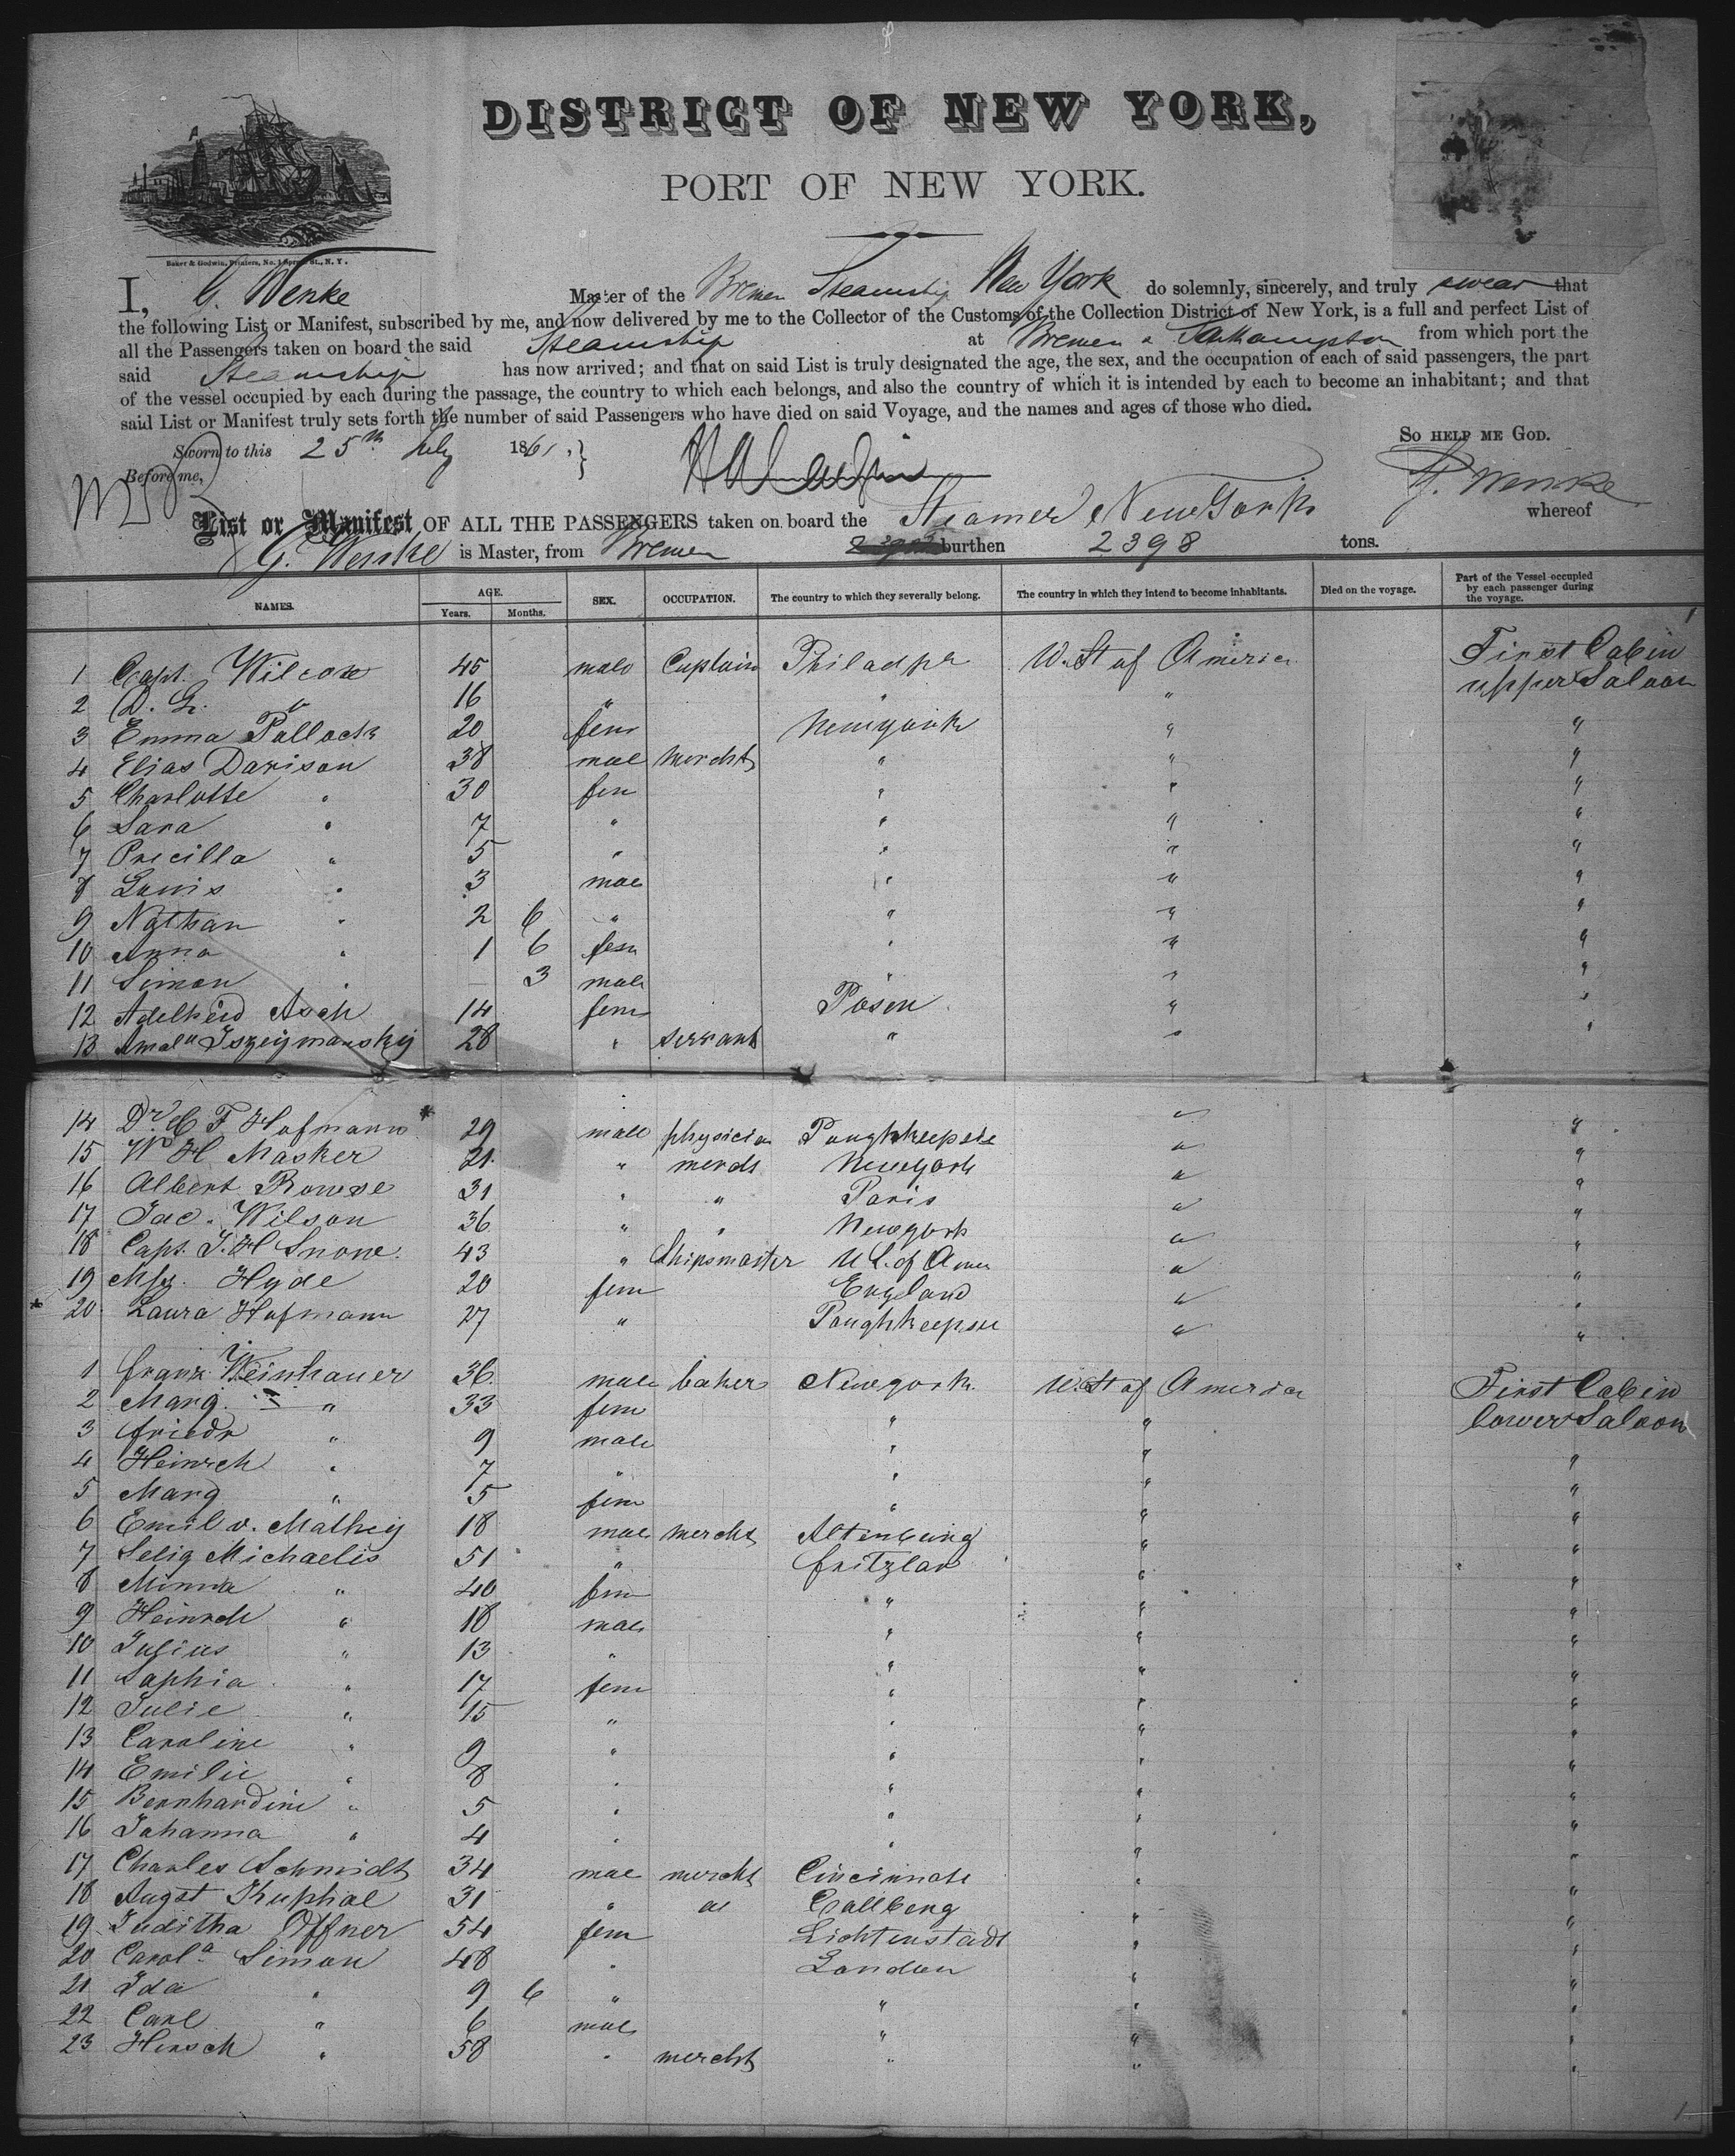 DISTRICT OF NEW YORK,
PORT OF NEW YORK.
Baker & Godwin, Printers, No. 1 Spruce St., N. Y.
I, G. Wenke Master of the Bremen Steamship New York do solemnly, sincerely, and truly swear that
the following List or Manifest, subscribed by me, and now delivered by me to the Collector of the Customs of the Collection District of New York, is a full and perfect List of
all the Passengers taken on board the said Steamship at Bremen & Southampton from which port the
said Steamship has now arrived; and that on said List is truly designated the age, the sex, and the occupation of each of said passengers, the part
of the vessel occupied by each during the passage, the country to which each belongs, and also the country of which it is intended by each to become an inhabitant; and that
said List or Manifest truly sets forth the number of said Passengers who have died on said Voyage, and the names and ages of those who died.
SO HELP ME GOD.
Sworn to this 25th July 1861.
Before me, G. Wenke
List or Manifest OF ALL THE PASSENGERS taken on board the Steamer New York whereof
G. Wenke is Master, from Bremen burthen 2398 tons.
NAMES. AGE. Years. Months. SEX. OCCUPATION. The country to which they severally belong. The country in which they intend to become inhabitants. Died on the voyage. Part of the Vessel occupied by each passenger during the voyage.
1 Capt. Wilcox 45 male Captain Philadpa U. St of America First Cabin
2 D. L. " 16 " " " upper Saloon
3 Emma Pollack 20 fem Newyork " "
4 Elias Davison 38 male Merchts " " "
5 Charlotte " 30 fem " " "
6 Sara " 7 " " " "
7 Precilla " 5 " " " "
8 Louis " 3 male " " "
9 Nathan " 2 6 " " " "
10 Anna " 1 6 fem " " "
11 Simon " 3 male " " "
12 Adelheid Asch 14 fem Posen " "
13 Amala 28 " servant " " "
14 Dr. C F Hofmann 29 male physician Poughkeepsie " "
15 W H Masker 21 " merchts Newyork " "
16 Albert Rowse 31 " " Paris " "
17 Jac. Wilson 36 " " Newyork " "
18 Capt. J. H Snow 43 " Shipsmaster U S. of Amer " "
19 Hyde 20 fem England " "
20 Laura Hofmann 27 " Poughkeepsie " "
1 Franz Weinhauer 36 male baker Newyork U. St of America First Cabin
2 Marg. " 33 fem " " lower Saloon
3 Friedr " 9 male " " "
4 Heinrch " 7 " " " "
5 Marg " 5 fem " " "
6 Emil v. Mathey 18 male merchts Altenburg " "
7 Selig Michaelis 51 " Fritzlar " "
8 Minna " 40 fem " " "
9 Heinrch " 18 male " " "
10 Julius " 13 " " " "
11 Sophia " 17 fem " " "
12 Julie " 15 " " " "
13 Caroline " 9 " " " "
14 Emilie " 8 " " " "
15 Bernhardine " 5 " " " "
16 Johanna " 4 " " " "
17 Charles Schmidt 34 male merchts Cincinnati " "
18 Augst Kuphal 31 " " Collberg " "
19 Juditha Offner 54 fem Lichtenstadt " "
20 Carola Simon 48 " London " "
21 Ida " 9 6 " " " "
22 Carl " 6 male " " "
23 Hirsch " 58 " merchts " " "